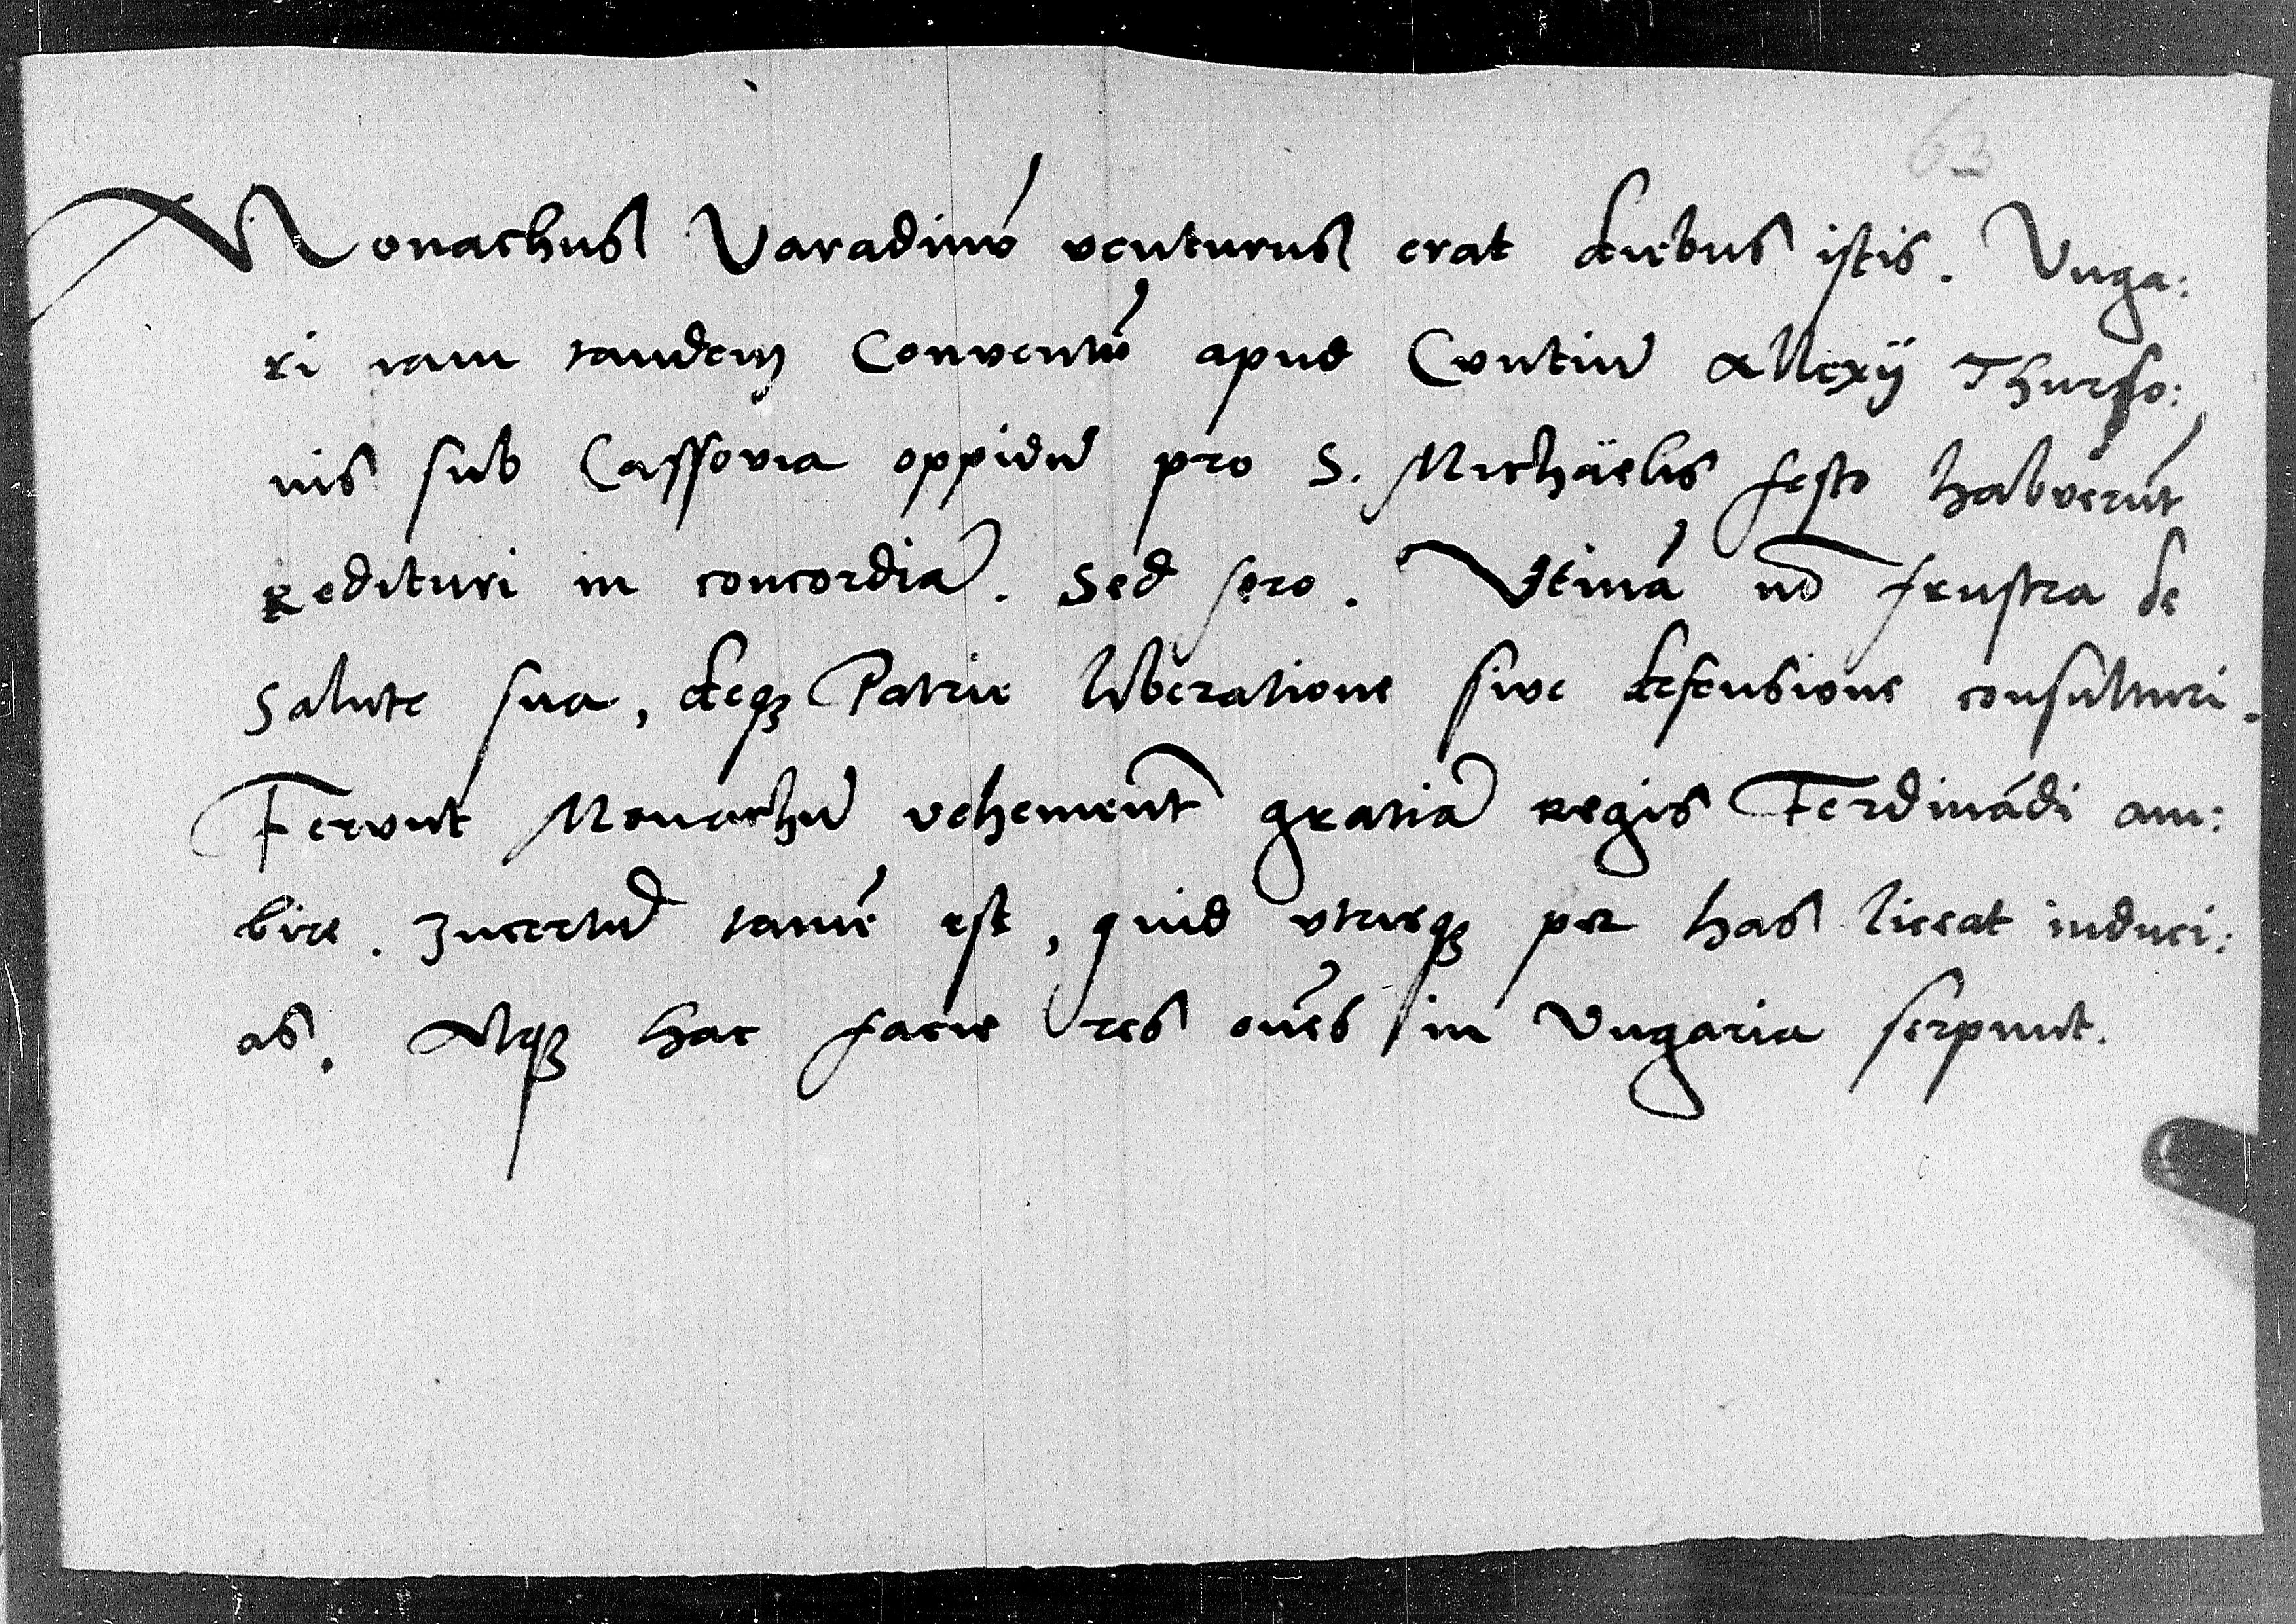 63
Monachus Varadinū venturus erat diebus istis. Vnga:
ri iam tandem Conventū apud Contiū Allexÿ Thurso:
nis sub Cassovia oppidū pro S. Michäelis festo habverūt
Redituri in concordiā. Sed sero. Vtinā nō frustra de
salute sua, deqȝ Patrie liberatione sive defensione consulturi.
Fervnt Monachū vehemēnt gratiā Regis Ferdinādi am:
bire. Incertū tamē est, quid vtrieqȝ per has liceat induci:
as. Atqȝ hac facie res oēs in Vngaria serpunt.